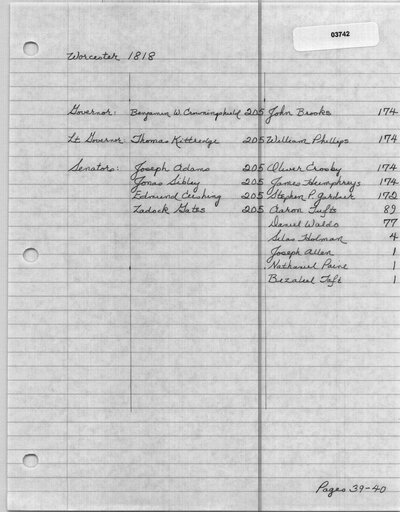 03742
Worcester 1818
Governor: Benjamin W. Crowninshield 205 John Brooks 174
Lt Governor: Thomas Kittredge 205 William Phillips 174
Senators: Joseph Adams 205 Oliver Crosby 174
Jonas Sibley 205 James Humphreys 174
Edmund Cushing 205 Stephen P. Gardner 172
Zadock Gates 205 Aaron Tufts 89
Daniel Waldo 77
Silas Holman 4
Joseph Allen 1
Nathaniel Paine 1
Bezaleel Taft 1
Pages 39-40